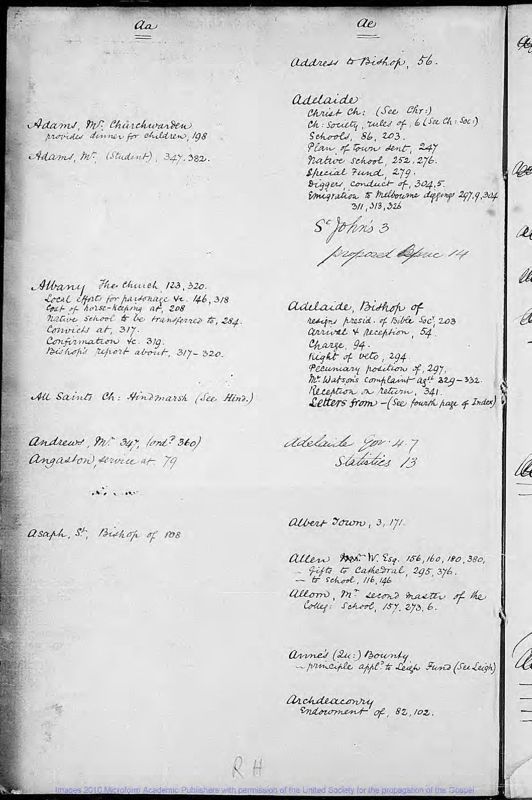 Aa
Adams, Mr. Churchwarden
provides dinner for children, 198
Adams, Mr. (Student), 347, 382.
Albany The Church, 123, 320.
Local efforts for parsonage &c. 146, 318
Cost of horse-keeping at, 208
Native School to be transferred to, 284.
Convicts at, 317.
Confirmation &c. 319.
Bishop's report about, 317-320.
All Saints Ch: Hindmarsh (See Hind.)
Andrews, Mr. 347, (ord.d 360)
Angaston, service at 79
Asaph, St., Bishop of 108
Ae
Address to Bishop, 56.
Adelaide
Christ Ch: (See Chr:)
Ch: Society, rules of 6 (See Ch: Soc:)
Schools, 86, 203.
Plan of town sent, 247
Native School, 252, 276.
Special Fund, 279.
Diggers, conduct of, 304,5.
Emigration to Melbourne diggings 297,9,304
311, 313, 326
St John's 3
proposed 14
Adelaide, Bishop of
resigns presid. of Bible Soc.y, 203
Arrival & reception, 54.
Charge, 94.
Right of veto, 294.
Pecuniary position of, 297.
Mr. Watson's complaint agst 329-332.
Reception on return, 341.
Letters from - (See fourth page of Index)
Adelaide Gov. 4. 7
Statistics 13
Albert Town, 3, 171.
Allen W. Esq. 156, 160, 180, 380,
- Gifts to Cathedral, 295, 376.
- to School, 116, 146
Allom, Mr. second master of the
Colleg: School, 157, 273, 6.
Anne's (Qu:) Bounty
- principle appl.d to Leigh Fund (See Leigh)
Archdeaconry
Endowment of, 82, 102.
R H
Images 2010 Microform Academic Publishers with permission of the United Society for the propagation of the Gospel